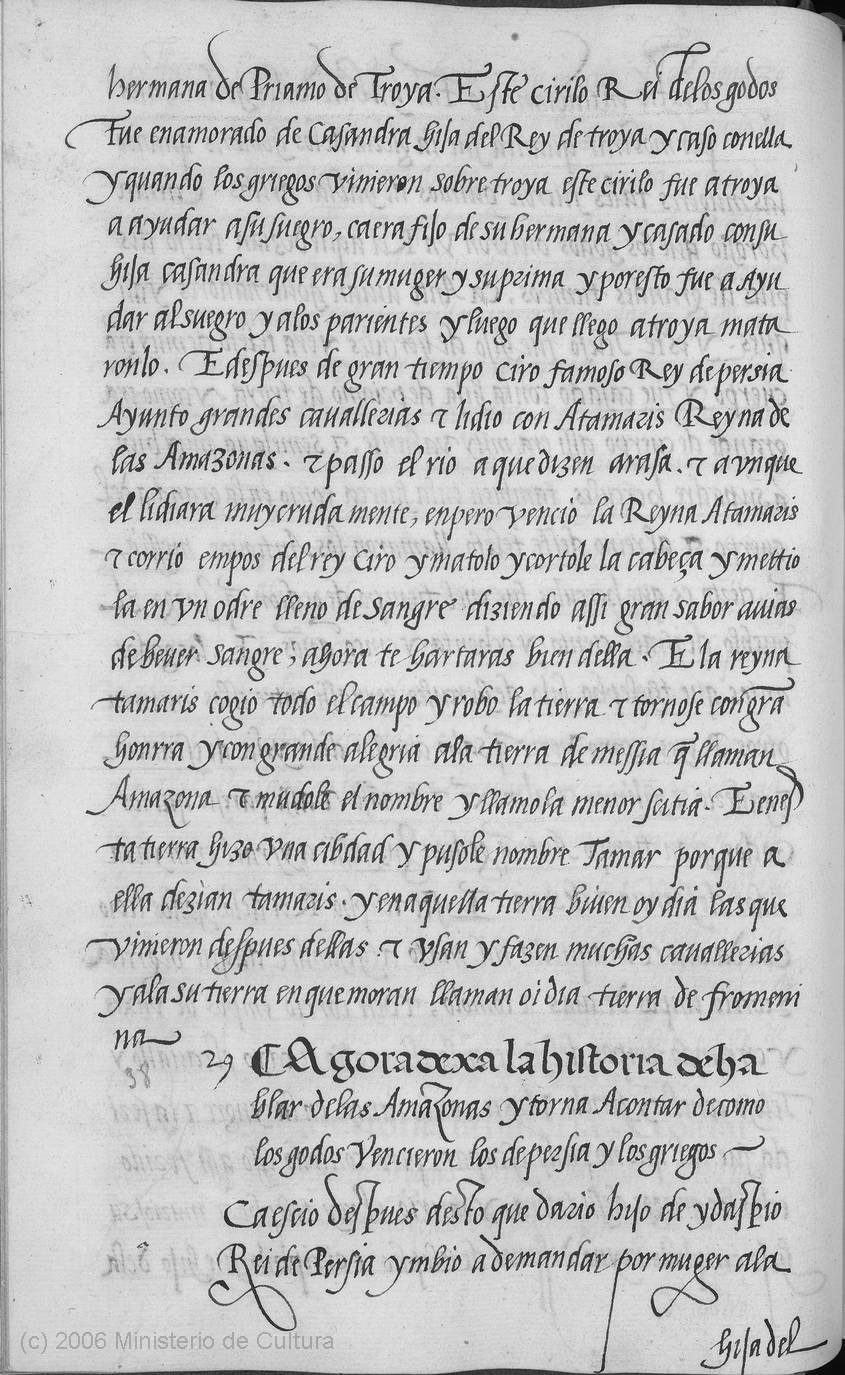 hermana de Priamo de Troya. Este cirilo Rei delos godos
Fue enamorado de Casandra hija del Rey de troya y caso conella
y quando los griegos vinieron sobre troya este cirilo fue a troya
a ayudar asu suegro, ca era fijo de su hermana y casado consu
hija casandra que era su muger y su prima y poresto fue a Ayu
dar al suegro y alos parientes y luego que llego a troya mata
ronlo. E despues de gran tiempo Ciro famoso Rey de persia
Ayunto grandes cavallerias τ lidio con Atamaris Reyna de
las Amazonas. τ passo el rio a que dizen arasa. τ aunque
el lidiara muy cruda mente, enpero vencio la Reyna Atamaris
τ corrio empos del rey Ciro y matolo y cortole la cabeça y mettio
la en vn odre lleno de sangre diziendo assi gran sabor auias
de bever sangre, ahora te hartaras bien della. E la reyna
tamaris cogio todo el campo y robo la tierra τ tornose congrā
honrra y con grande alegria ala tierra de messia q̄ llaman
Amazona τ mudole el nombre y llamola menor scitia. E enes
ta tierra hizo vna cibdad y pusole nombre Tamar porque a
ella dezian tamaris. y en aquella tierra biven oy dia las que
vinieron despues dellas τ vsan y fazen muchas cavallerias
y ala su tierra en que moran llaman oi dia tierra de fromeni
na
29 ¶ Agora dexa la historia de ha
38
blar delas Amazonas y torna Acontar de como
los godos Vencieron los de persia y los griegos
Caescio despues desto que dario hijo de ydaspio
Rei de Persia ymbio a demandar por muger ala
hija del
(c) 2006 Ministerio de Cultura